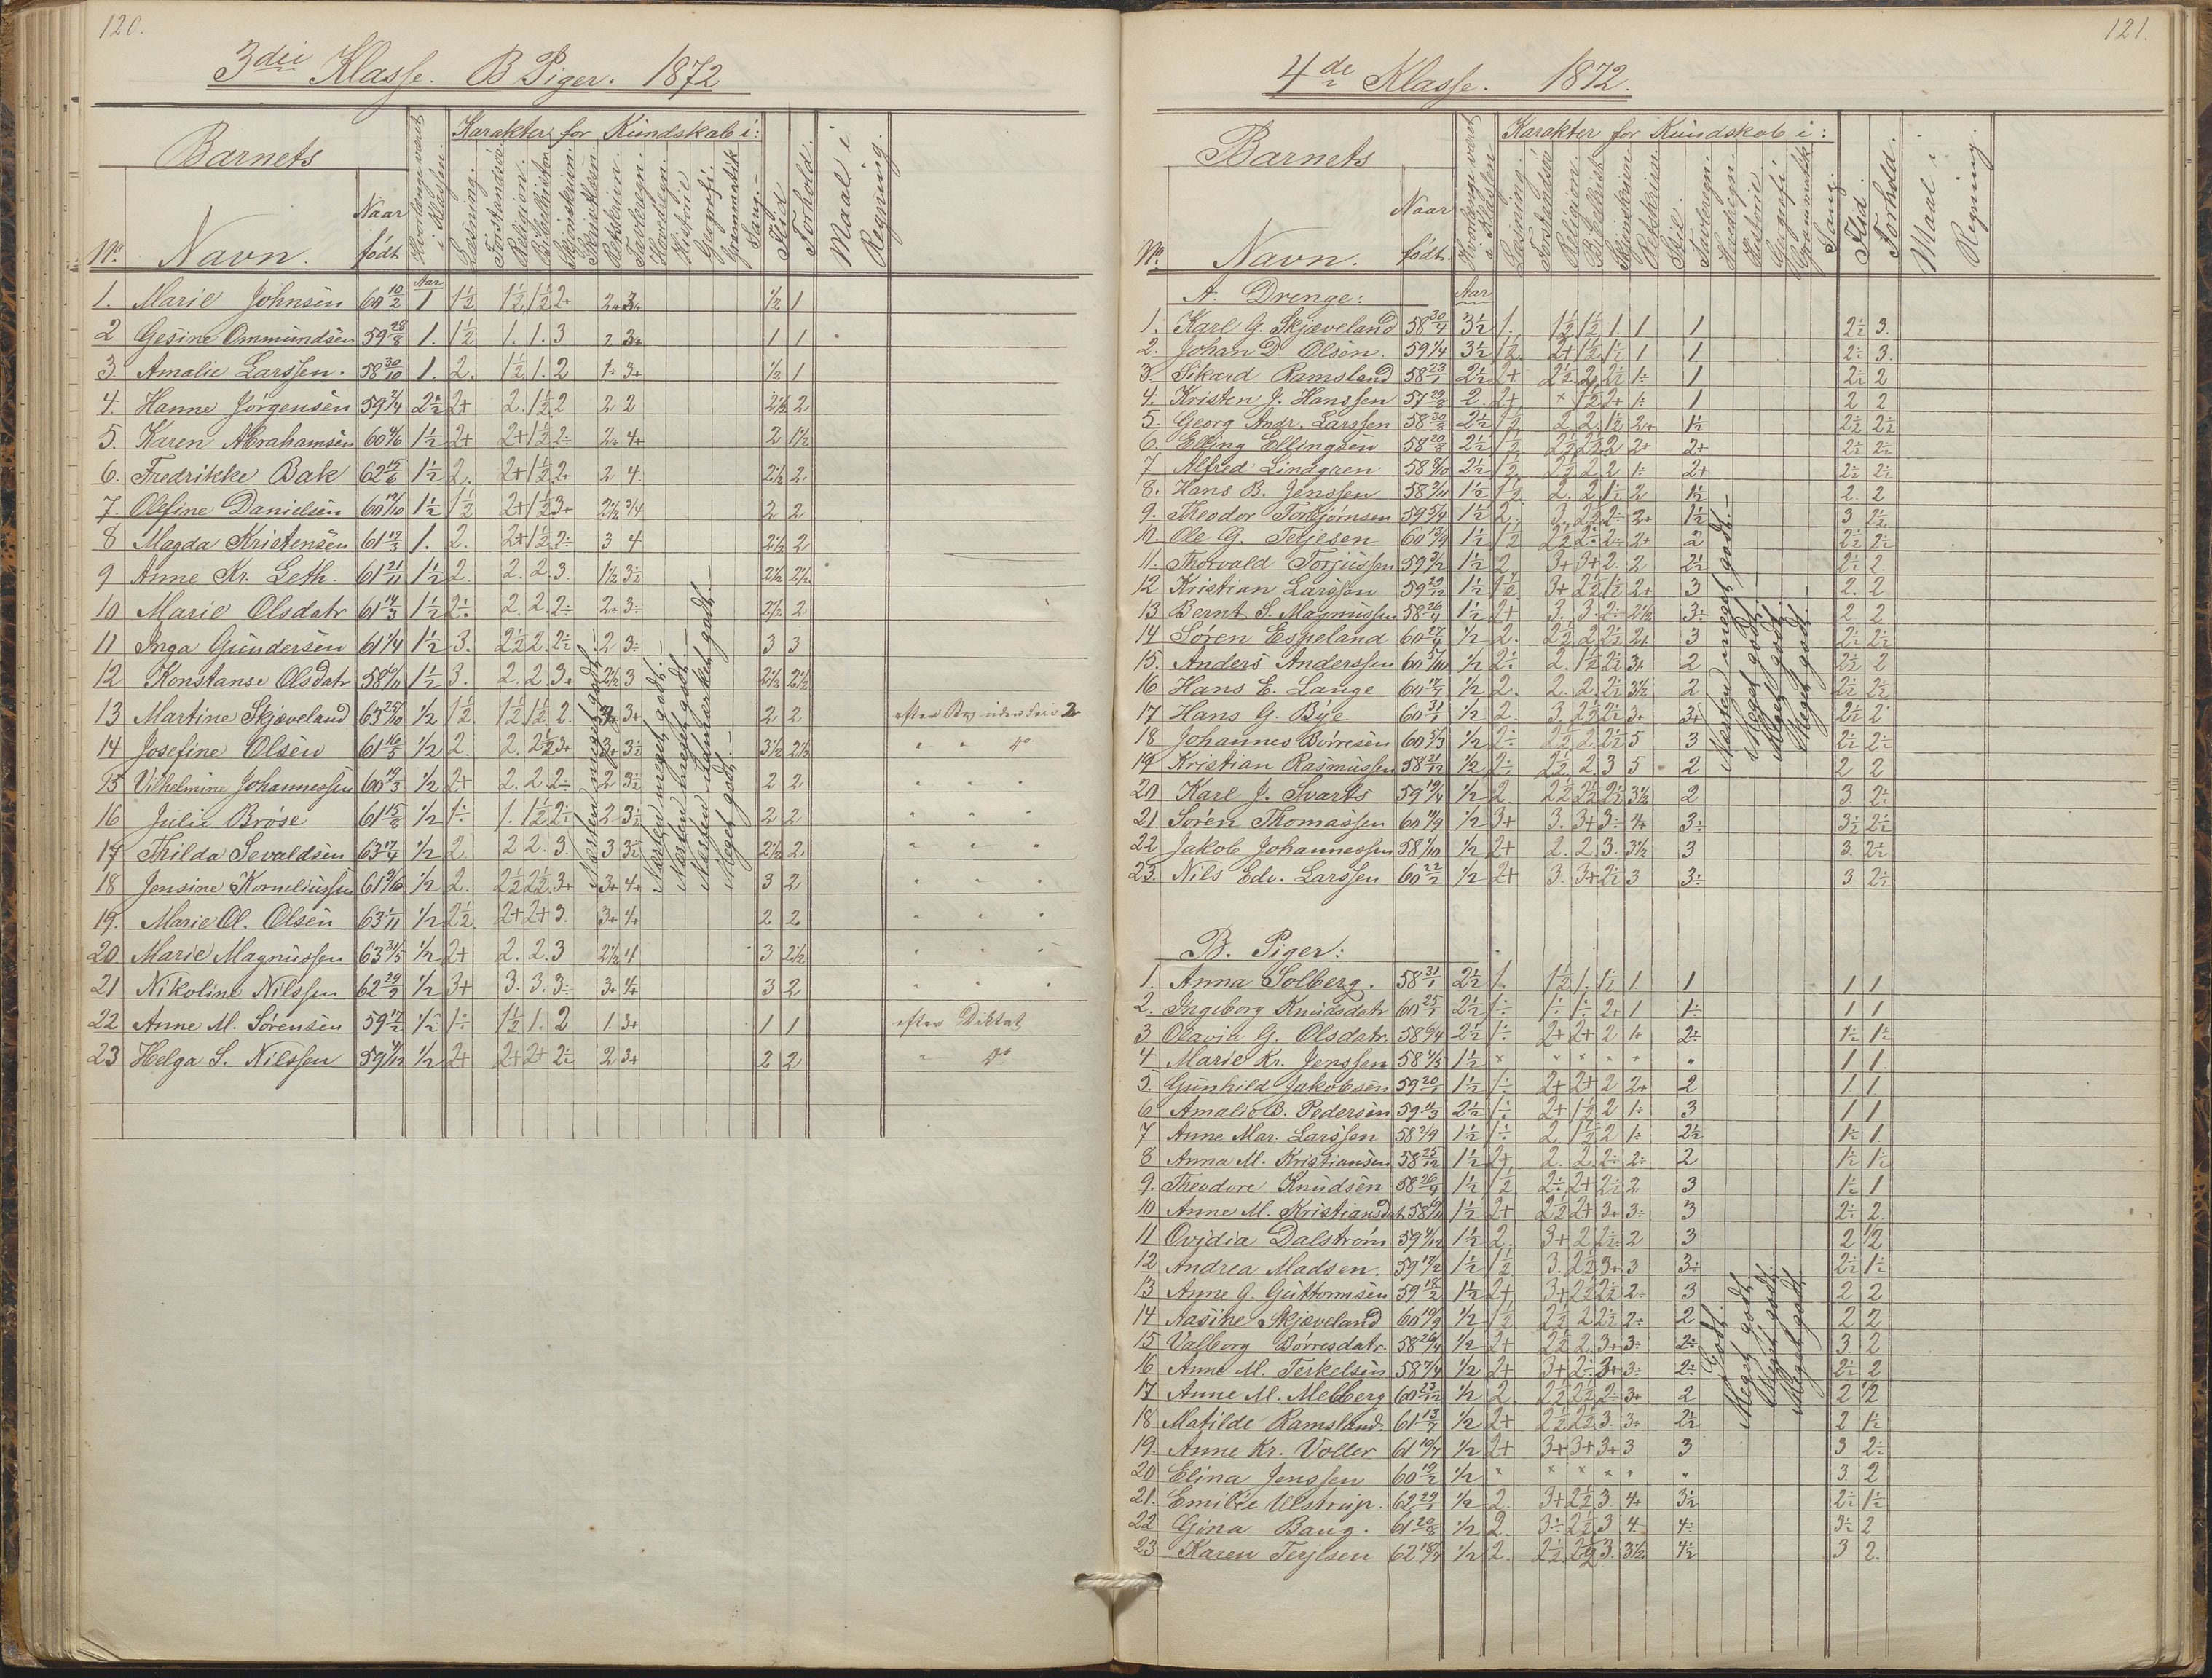 120.
3die Klasse. B Piger. 1872
Barnets
Hvorlænge været i Klassen.
Karakter for Kundskab i:
Flid
Forhold.
Maal i Regning.
No. Navn. Naar født
Læsning. Forstandsöv. Religion. Bibelhistor. Skjönskrivn. Retskrivn. Tavleregn. Hovedregn. Historie Geografi. Grammatik Sang.
Aar
1. Marie Johnsen 60 10/2 1 1½ 1½ 1½ 2+ 2+ 3+ ½ 1
2 Gesine Ommundsen 59 28/8 1. 1½ 1. 1. 3 2 3+ 1 1
3. Amalie Larssen. 58 30/10 1. 2. 1½ 1. 2 1÷ 3+ ½ 1
4. Hanne Jörgensen 59 2/4 2½ 2+ 2. 1½ 2 2 2 2½ 2
5. Karen Abrahamsen 60 4/6 1½ 2+ 2+ 1½ 2÷ 2÷ 4+ 2 1½
6. Fredrikke Bak 62 15/6 1½ 2. 2+ 1½ 2+ 2 4. 2½ 2
7. Olefine Danielsen 60 13/10 1½ 1½ 2+ 1½ 3+ 2½ 3/4 2 2
8 Magda Kristensen 61 17/3 1. 2. 2+ 1½ 2÷ 3 4 2½ 2
9 Anne Kr. Leth. 61 21/11 1½ 2. 2. 2. 3. 1½ 3½ 2½ 2½
10 Marie Olsdatr 61 14/3 1½ 2÷ 2. 2. 2÷ 2÷ 3÷ 2½ 2
11 Inga Gundersen 61 1/4 1½ 3. 2½ 2. 2½ 2 3÷ 3 3
12 Konstanse Olsdatr 58 6/11 1½ 3. 2. 2. 3+ 2½ 3 2½ 2½
13 Martine Skjæveland 63 25/10 ½ 1½ 1½ 1½ 2. 3+ 3+ 2 2
14 Josefine Olsen 61 16/5 ½ 2. 2. 2½ 3+ 3+ 3½ 3½ 2½ " " do
15 Vilhelmine Johannessen 60 19/3 ½ 2+ 2. 2. 2÷ 2 3½ 2 2 " " "
16 Julie Bröse 61 15/8 ½ 1÷ 1. 1½ 2÷ 2 3½ 2 2 " " "
17 Thilda Sevaldsen 63 17/4 ½ 2 2 2. 3. 3 3½ 2½ 2 " " "
18 Jensine Korneliussen 61 9/6 ½ 2. 2½ 2½ 3+ 3+ 4+ 3 2 " " "
19. Marie Ol. Olsen 63 1/11 ½ 2½ 2+ 2+ 3. 3+ 4+ 2 2 " " "
20 Marie Magnussen 63 31/5 ½ 2+ 2. 2. 3 2½ 4 3 2½ " " "
21 Nikoline Nilssen 62 29/9 ½ 3+ 3. 3. 3÷ 3+ 4+ 3 2 " " "
22 Anne M. Sörensen 59 17/2 ½ 1÷ 1½ 1. 2 1. 3+ 1 1 efter Diktat
23 Helga S. Nilssen 59 4/12 ½ 2+ 2+ 2+ 2÷ 2 3+ 2 2 " do
Næsten meget godt.
Næsten meget godt.
Næsten meget godt.
Meget godt.
121.
4de Klasse. 1872.
Barnets
Hvorlænge været i Klassen
Karakter for Kundskab i:
Flid.
Forhold.
Maal i Regning.
No. Navn. Naar født.
Læsning. Forstandsöv Religion. Bibelhist. Skjönskrivn. Retskrivn. Stil. Tavleregn. Hovedregn. Historie Geografi Grammatik Sang.
A. Drenge: Aar
1. Karl G. Skjæveland 58 30/4 3½ 1. 1½ 1½ 1. 1 1 2½ 3.
2. Johan D. Olsen. 59 1/4 3½ 1½ 2+ 1½ 1½ 1 1 2÷ 3.
3. Sikard Ramsland 58 23/1 2½ 2+ 2½ 2. 2½ 1÷ 1 2½ 2
4. Kristen J. Hanssen 57 29/8 2. 2+ " 1½ 2+ 1÷ 1 2 2
5. Georg Andr. Larssen 58 30/8 2½ 1½ 2. 2. 1½ 2+ 1½ 2½ 2½
6. Elling Ellingsen 58 20/8 2½ 1½ 2½ 2½ 2 2+ 2+ 2½ 2½
7 Alfred Lindgren 58 8/10 2½ 1½ 2½ 2. 2 1÷ 2+ 2½ 2½
8. Hans B. Jenssen 58 2/11 1½ 1½ 2. 2. 1½ 2 1½ 2. 2
9. Theodor Torbjörnsen 59 5/4 1½ 2. 3. 2½ 2÷ 2+ 1½ 3 2½
10 Ole G. Terjesen 60 13/9 1½ 1½ 2½ 2÷ 2÷ 2+ 2 2½ 2½
11. Thorvald Torjussen 59 3/12 1½ 2 3+ 3+ 2. 2 2½ 2½ 2.
12 Kristian Larssen 59 29/12 1½ 1½ 3+ 2½ 1½ 2+ 3 2. 2
13 Bernt S. Magnussen 58 26/4 1½ 2+ 3. 3. 2÷ 2½ 3÷ 2 2
14 Sören Espeland 60 27/4 ½ 2. 2½ 2. 2½ 2+ 3 2½ 2½
15. Anders Anderssen 60 5/10 ½ 2÷ 2. 1½ 2½ 3+ 2 2½ 2
16 Hans E. Lange 60 17/7 ½ 2. 2. 2. 2½ 3½ 2 2½ 2½
17 Hans G. Bye 60 31/1 ½ 2. 3. 2½ 2½ 3+ 3+ 2½ 2
18 Johannes Börresen 60 5/3 ½ 2÷ 2½ 2. 2½ 5 3 2½ 2½
19 Kristian Rasmussen 58 21/12 ½ 2÷ 2½ 2. 3 5 2 2 2
20 Karl J. Svarts 59 19/4 ½ 2. 2½ 2½ 2½ 3½ 2 3. 2÷
21 Sören Thomassen 60 19/9 ½ 3+ 3. 3+ 3÷ 4+ 3÷ 3½ 2½
22 Jakob Johannessen 58 1/10 ½ 2+ 2. 2. 3. 3½ 3 3. 2½
23. Nils Edv. Larssen 60 22/2 ½ 2+ 3. 3+ 2½ 3 3÷ 3 2½
Næsten meget godt.
Meget godt.
Meget godt.
Meget godt.
B. Piger:
1. Anna Solberg. 58 31/1 2½ 1. 1½ 1. 1½ 1 1 1 1
2. Ingeborg Knudsdatr 60 25/1 2½ 1÷ 1÷ 1÷ 2+ 1 1÷ 1 1
3 Olavia G. Olsdatr. 58 6/4 2½ 1÷ 2+ 2+ 2 1+ 2÷ 1÷ 1÷
4 Marie Kr. Jenssen 58 4/5 1½ " " " " " " 1 1
5. Gunhild Jakobsen 59 20/1 1½ 1÷ 2+ 2+ 2 2+ 2 1 1
6 Amalie B. Pedersen 59 11/3 2½ 1÷ 2+ 1½ 2 1÷ 3 1 1
7 Anne Mar. Larssen 58 2/9 1½ 1÷ 2 1½ 2 1÷ 2½ 1÷ 1
8 Anna M. Kristiansen 58 25/12 1½ 2+ 2. 2. 2÷ 2÷ 2 1½ 1½
9. Theodore Knudsen 58 26/4 1½ 1½ 2÷ 2+ 2½ 2 3 1÷ 1
10 Anne M. Kristiansdatr 58 6/11 1½ 2+ 2½ 2+ 3+ 3÷ 3 2½ 2
11 Ovidia Dalström 59 4/12 1½ 2. 3+ 2 2½ 2 3 2 ½
12 Andrea Madsen. 59 17/2 1½ 1½ 3. 2½ 3+ 3 3÷ 2½ 1½
13 Anne G. Guttormsen 59 18/2 1½ 2+ 3+ 2½ 2½ 2÷ 3 2 2
14 Aasine Skjæveland 60 19/9 ½ 1½ 2½ 2 2½ 2÷ 2 2 2
15 Valborg Börresdatr 58 26/4 ½ 2+ 2½ 2. 3+ 3÷ 2÷ 3. 2
16 Anne M. Terkelsen 58 7/4 ½ 2+ 3+ 2÷ 3+ 3÷ 2÷ 2½ 2
17 Anne M. Melberg 60 23/12 ½ 2. 2½ 2½ 2÷ 3+ 2 2 ½
18 Matilde Ramsland. 61 13/7 ½ 2+ 2½ 2½ 3. 3÷ 2½ 2 1½
19. Anne Kr. Voller 61 10/7 ½ 2+ 3+ 3+ 3+ 3 3 3 2÷
20 Elina Jenssen 60 19/2 ½ " " " " " " 3. 2
21. Emilie Ulstrup. 62 29/1 ½ 2. 3+ 2½ 3 4+ 3½ 2½ 1½
22 Gina Baug. 61 20/8 ½ 2. 3÷ 2½ 3 4. 4÷ 3½ 2
23 Karen Terjesen 62 18/7 ½ 2. 2½ 2½ 3. 3½ 4½ 3 2.
Godt.
Meget godt.
Meget godt.
Meget godt.